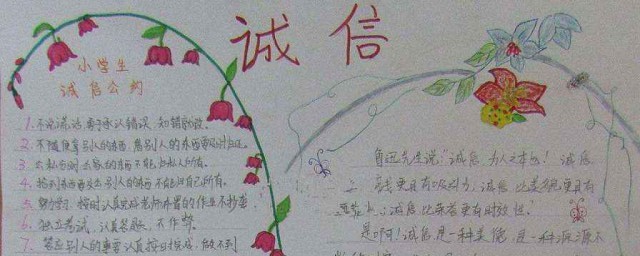 诚信
小学生
诚信公约
1. 不说谎话,勇于承认错误,知错就改。
2. 不随便拿别人的东西,借别人的东西要及时归还。
3. 公私分明,公家的东西不能归私人所有。
4. 拾到东西要还,别人的东西不能归自己所有。
5. 勤学习,按时认真完成老师布置的作业不抄袭
6. 独立考试,认真答题,不作弊。
7. 答应别人的事要认真按时完成,做不到
鲁迅先生说:“诚信,为人之本也!诚信
更具有吸引力,诚信比美貌更具有
;诚信比荣誉更有时效性。”
是啊!诚信是一种美德,是一种源源不